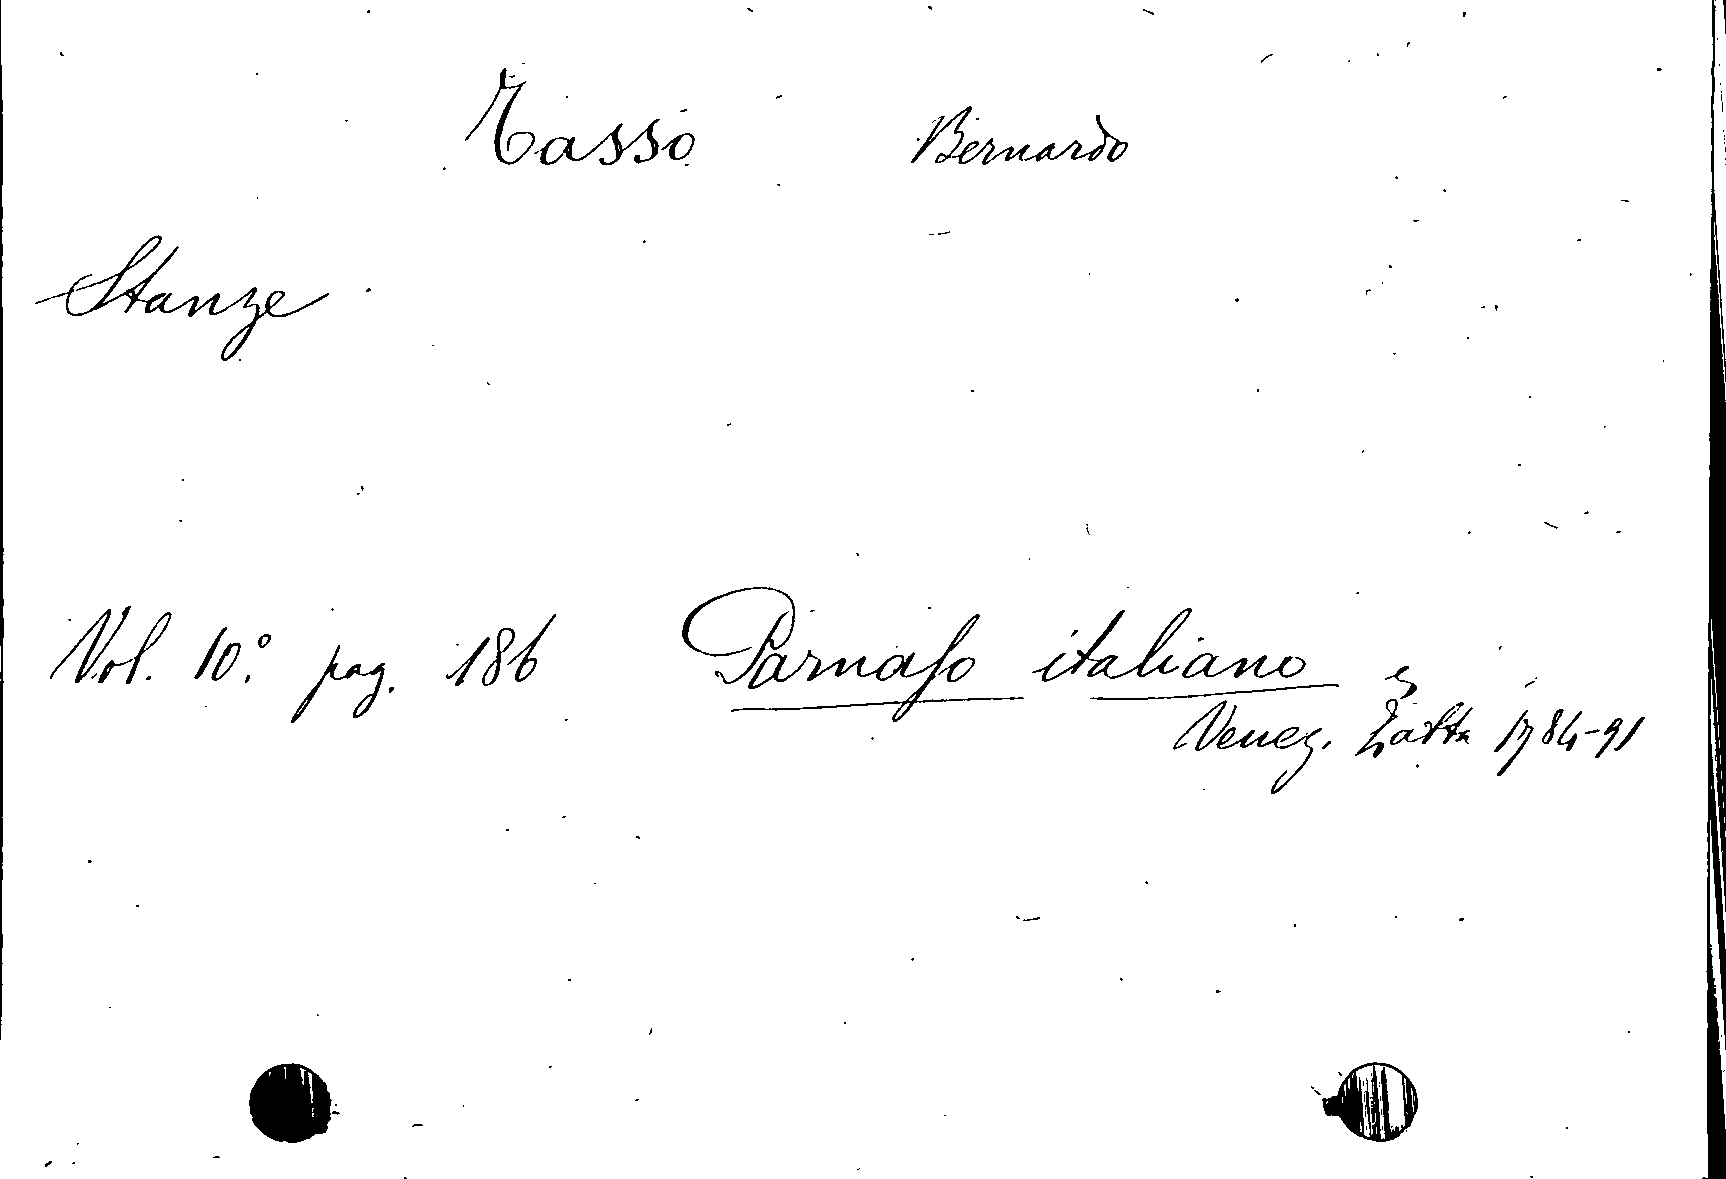 Tasso Bernardo
Stanze
Vol. 10.° pag. 186 Parnaso italiano
Venez. Zatta 1784-91